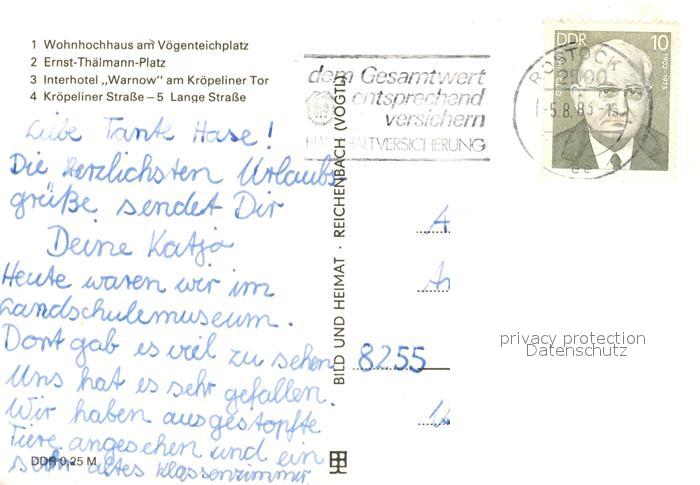 1 Wohnhochhaus am Vögenteichplatz
2 Ernst-Thälmann-Platz
3 Interhotel „Warnow" am Kröpeliner Tor
4 Kröpeliner Straße – 5 Lange Straße
Liebe Tante Hase!
Die herzlichsten Urlaubs
grüße sendet Dir
Deine Katja
Heute waren wir im
Landschulemuseum.
Dort gab es viel zu sehen.
Uns hat es sehr gefallen.
Wir haben ausgestopfte
Tiere angesehen und ein
sehr altes Klassenzimmer.
DDR 0,25 M
BILD UND HEIMAT · REICHENBACH (VOGTL)
dem Gesamtwert
entsprechend
versichern
HAUSHALTVERSICHERUNG
ROSTOCK
2500
DDR 10
8255
privacy protection
Datenschutz